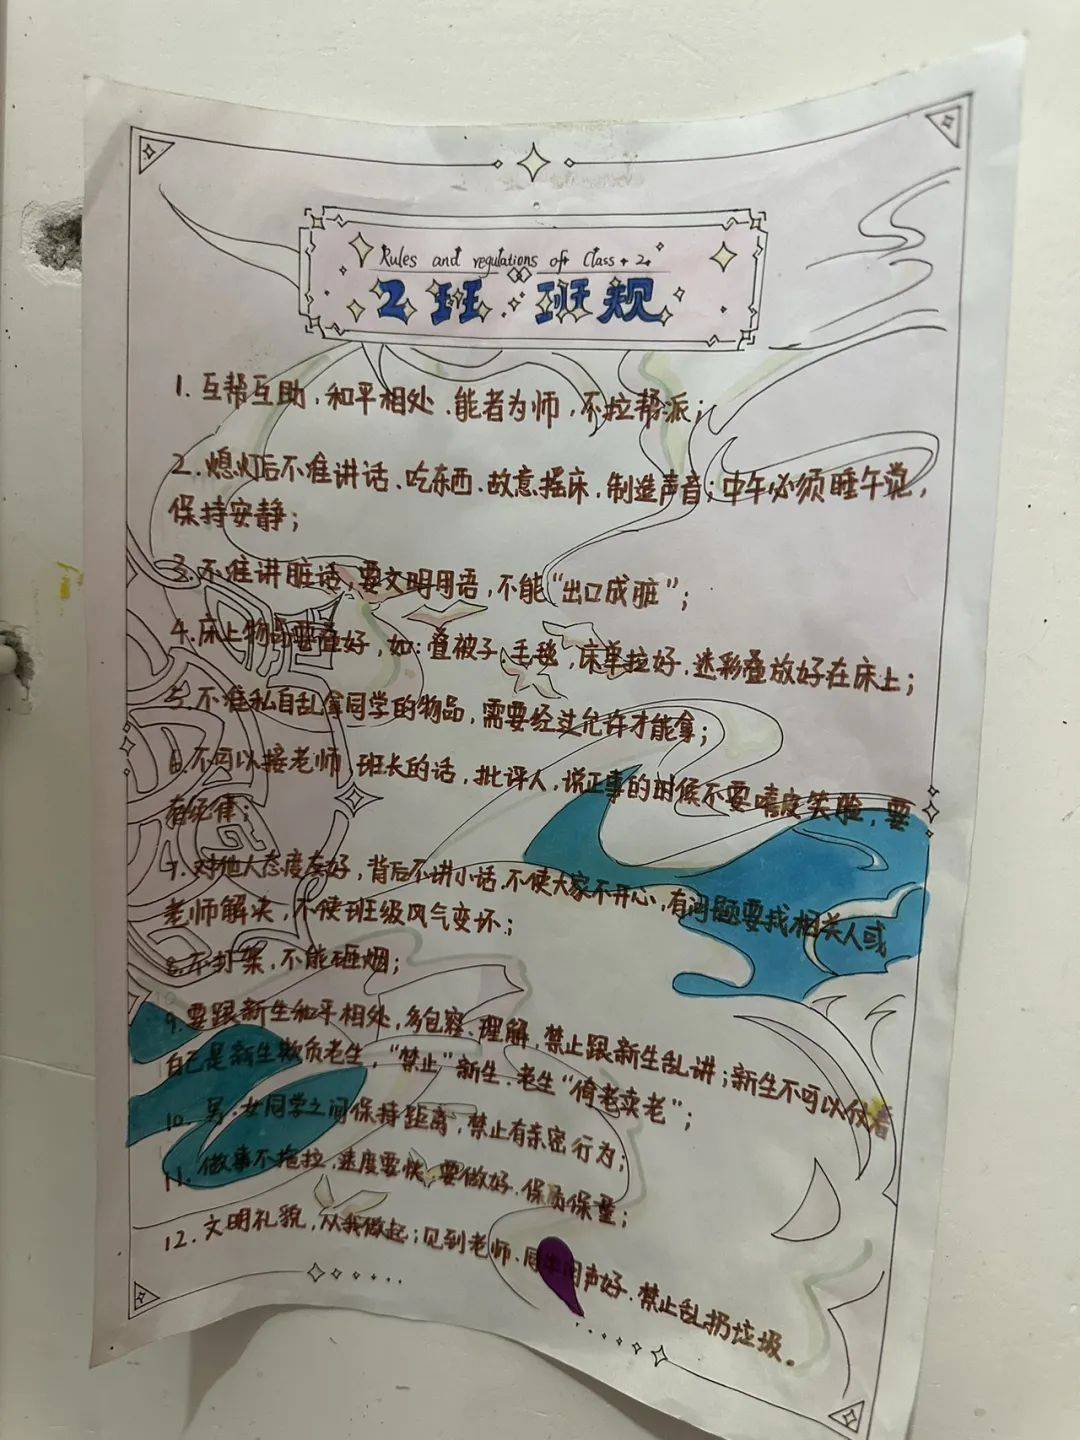 Rules and regulations of Class 2.
2班.班规
1.互帮互助,和平相处、能者为师,不拉帮派;
2.熄灯后不准讲话、吃东西、故意摇床,制造声音;中午必须睡午觉,
保持安静;
3.不准讲脏话,要文明用语,不能“出口成脏”;
4.床上物品要叠好,如:叠被子、毛毯,床单拉好、迷彩叠放好在床上;
5.不准私自乱拿同学的物品,需要经过允许才能拿;
6.不可以接老师、班长的话,批评人,说正事的时候不要嘻皮笑脸,要
有纪律;
7.对他人态度友好,背后不讲小话、不使大家不开心,有问题要找相关人或
老师解决,不使班级风气变坏;
8.不打架,不能砸烟;
9.要跟新生和平相处,多包容、理解,禁止跟新生乱讲;新生不可以仗着
自己是新生欺负老生,“禁止”新生、老生“倚老卖老”;
10.男、女同学之间保持距离,禁止有亲密行为;
11.做事不拖拉,速度要快,要做好、保质保量;
12.文明礼貌,从我做起;见到老师、同学问声好、禁止乱扔垃圾。